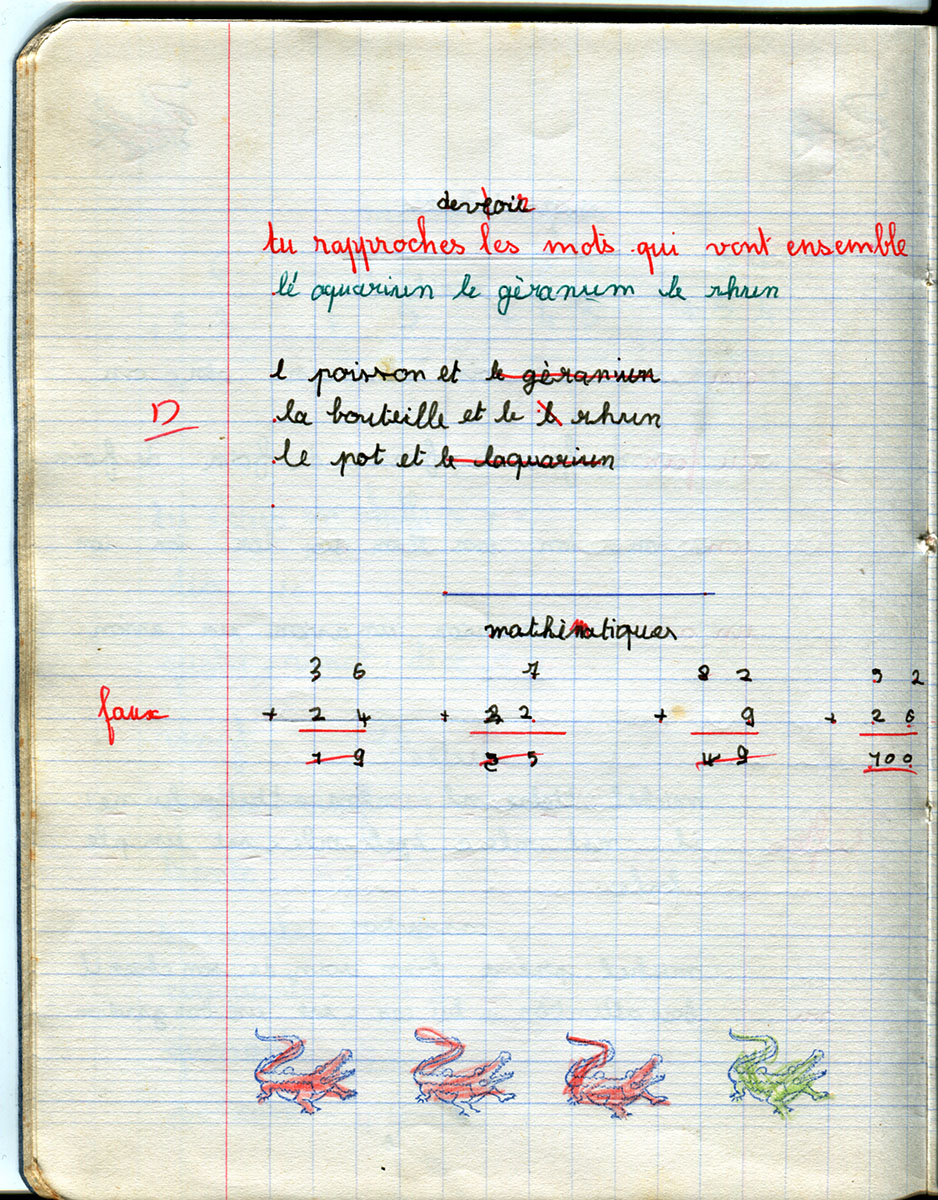 devoir
tu rapproches les mots qui vont ensemble
lé aquariun le gèranium le rhun
l poisson et le gèraniun
D
la bouteille et le rhun
le pot et le laquariun
mathématiques
3 6 7 8 2 9 2
faux + 2 4 + 2 2 + 9 + 2 6
7 9 5 4 9 100